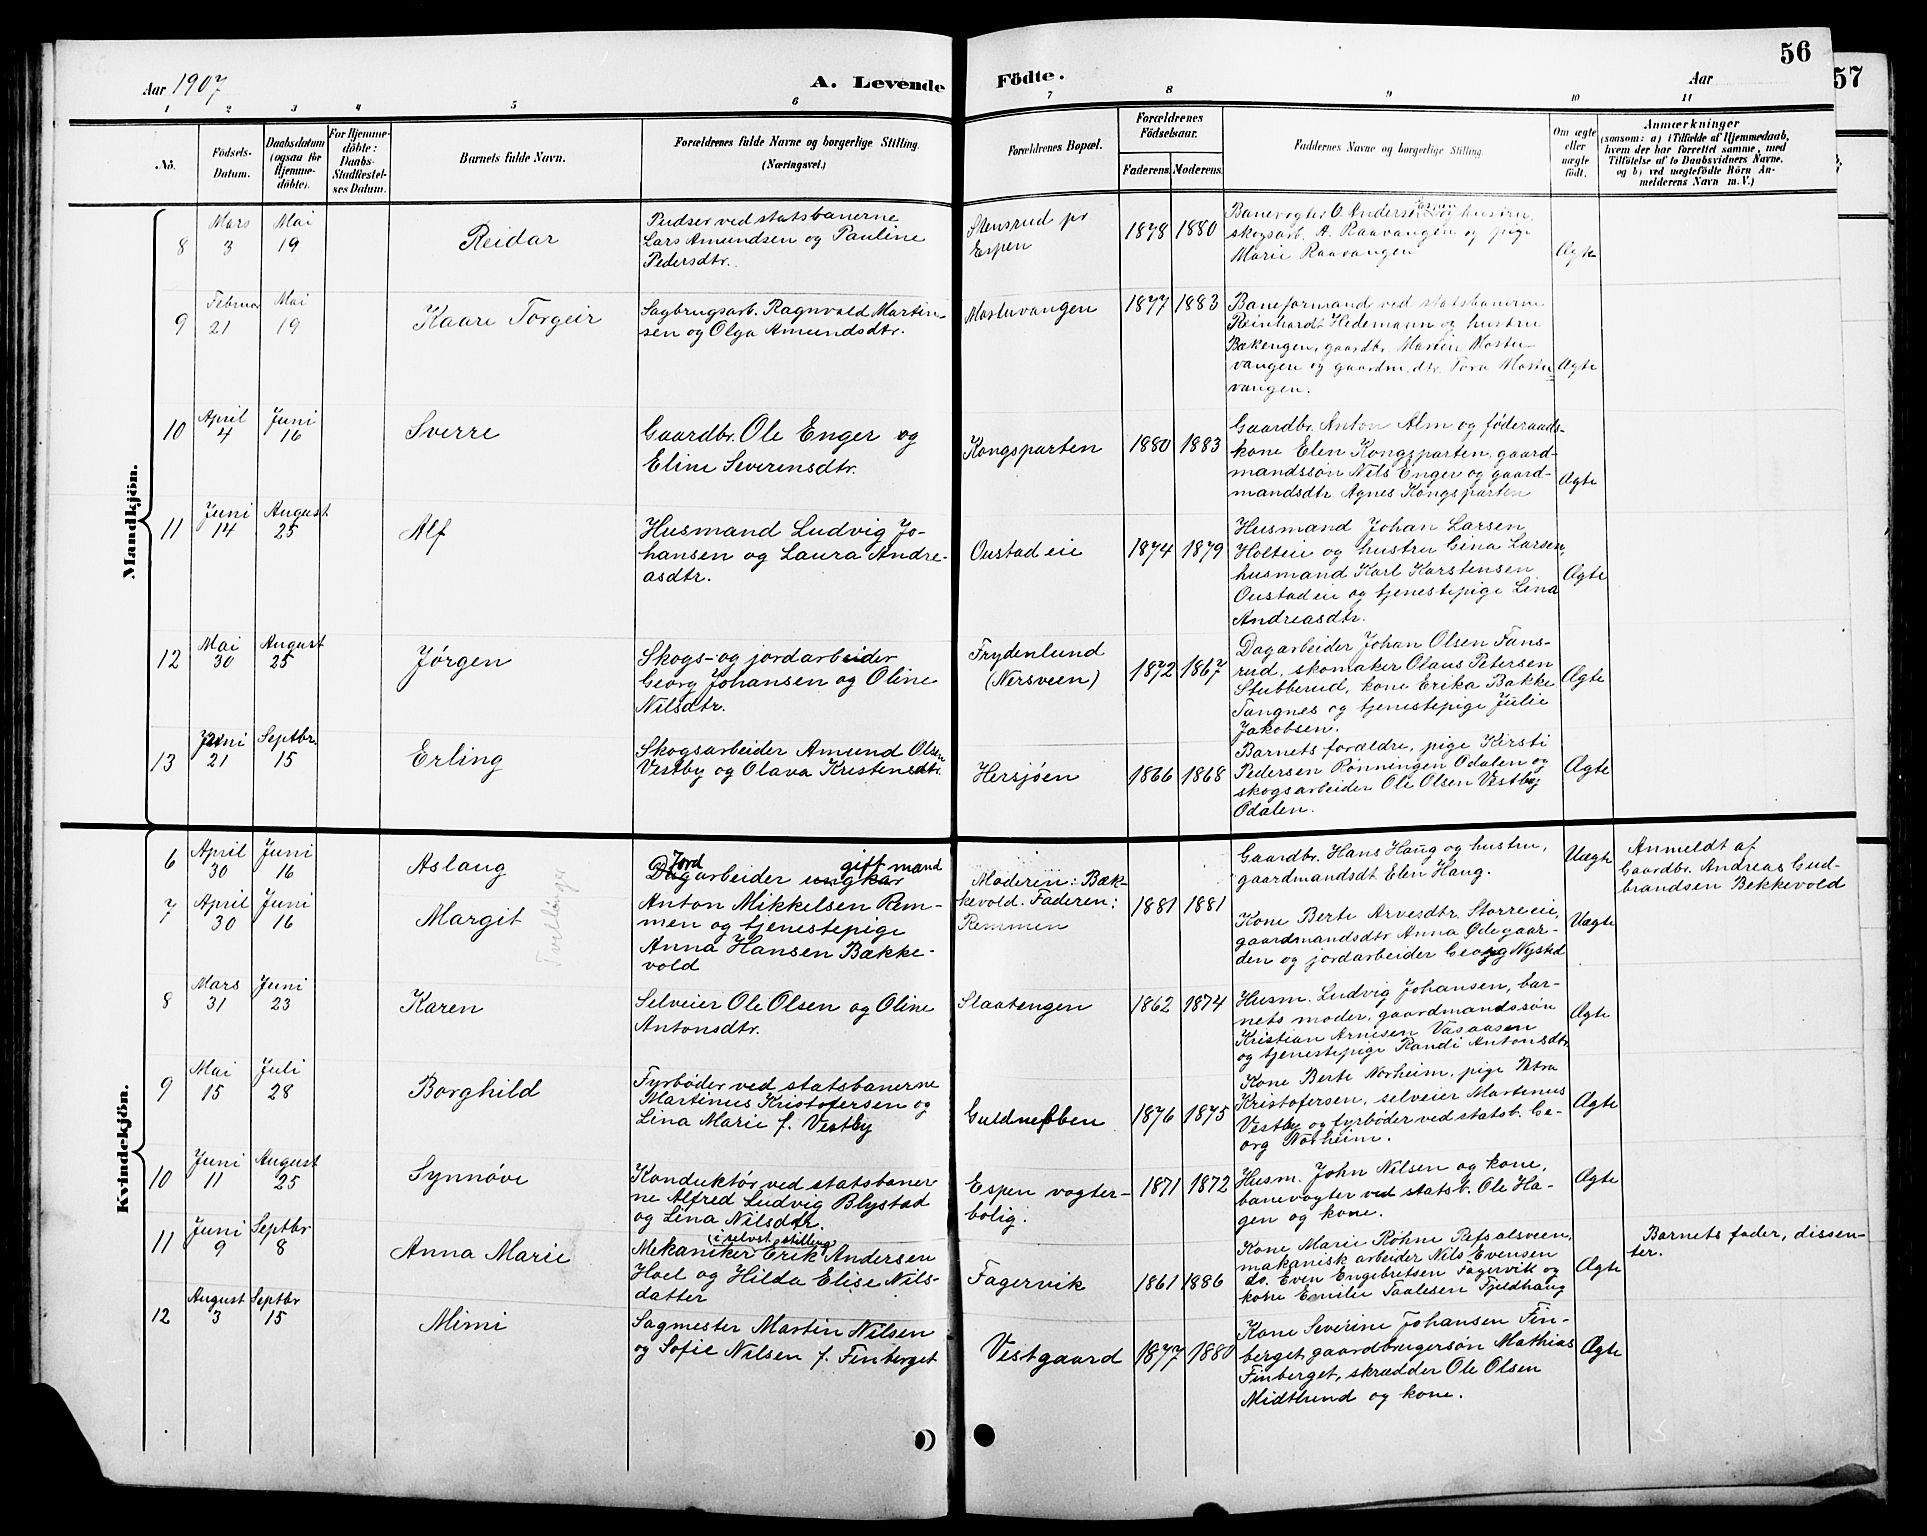 56
57
Aar 1907
A. Levende
Födte.
Aar
1 2 3 4 5 6 7 8 9 10 11
No.
Födsels-
Datum.
Daabsdatum
(ogsaa for
Hjemme-
döbte).
For Hjemme-
döbte:
Daabs-
Stadfæstel-
ses Datum.
Barnets fulde Navn.
Forældrenes fulde Navne og borgerlige Stilling.
(Næringsvei.)
Forældrenes Bopæl.
Forældrenes
Födselsaar.
Faderens. Moderens.
Faddernes Navne og borgerlige Stilling.
Om ægte
eller
uægte
födt.
Anmærkninger
(saasom: a) i Tilfælde af Hjemmedaab,
hvem der har forrettet samme, med
Tilföielse af to Daabsvidners Navne.
og b) ved uægtefödte Börn An-
melderens Navn m. V.)
Mandkjön.
8
Mars
3
Mai
19
Reidar
Pudser ved statsbanerne
Lars Amundsen og Pauline
Pedersdtr.
Stensrud pr
Espen
1878 1880
Banevogter O. Andersen og hustru,
skogsarb. A. Raavangen og pige
Marie Raavangen
Ægte
9
Februar
21
Mai
19
Kaare Torgeir
Sagbrugsarb. Ragnvald Martin-
sen og Olga Amundsdtr.
Mostuvangen
1877 1883
Baneformand ved statsbanerne
Reinhardt Hedemann og hustru
Bækengen, gaardbr. Martin Mostu-
vangen og gaardm.dtr. Tora Mostu-
vangen.
Ægte
10
April
4
Juni
16
Sverre
Gaardbr. Ole Enger og
Eline Severensdtr.
Kongsparten
1880 1883
Gaardbr. Anton Alm og føderaads-
kone Elen Kongsparten, gaard-
mandssøn Nils Enger og gaard-
mandsdtr Agnes Kongsparten
Ægte
11
Juni
14
August
25
Alf
Husmand Ludvig Jo-
hansen og Laura Andre-
asdtr.
Oustad eie
1874 1879
Husmand Johan Larsen
Holteie og hustru Gina Larsen,
husmand Karl Karstensen
Oustad eie og tjenestepige Lina
Andreasdtr.
Ægte
12
Mai
30
August
25
Jørgen
Skogs- og jordarbeider
Georg Johansen og Oline
Nilsdtr.
Frydenlund
(Nersveen)
1872 1867
Dagarbeider Johan Olsen Fans-
rud, skomaker Olaus Petersen
Stubberud, kone Erika Bakke
Tangnes og tjenestepige Julie
Jakobsen.
Ægte
13
Juni
21
Septbr.
15
Erling
Skogsarbeider Amund Olsen
Vestby og Olava Kristensdtr.
Hersjøen
1866 1868
Barnets forældre, pige Kirsti
Pedersen Rønningen Odalen og
skogsarbeider Ole Olsen Vestby
Odalen.
Ægte
Kvindekjön.
6
April
30
Juni
16
Aslaug
Jord gift mand
Dagarbeider ungkar
Anton Mikkelsen Rem-
men og tjenestepige
Anna Hansen Bække-
vold
Moderen: Bæk-
kevold. Faderen:
Remmen
1881 1881
Gaardbr. Hans Haug og hustru,
gaardmandsdt Elen Haug.
Uægte
Anmeldt af
Gaardbr. Andreas Gud-
brandsen Bekkevold
7
April
30
Juni
16
Margit
Tvillinger
Kone Berte Arvesdtr. Storreeie,
gaardmandsdtr Anna Ødegaar-
den og jordarbeider Georg Nysted
Uægte
8
Mars
31
Juni
23
Karen
Selveier Ole Olsen og Oline
Antonsdtr.
Slaatengen
1862 1874
Husm. Ludvig Johansen, bar-
nets moder, gaardmandssøn
Kristian Arnesen Vasaasen
og tjenestepige Randi Antonsdtr
Ægte
9
Mai
15
Juli
28
Borghild
Fyrbøder ved statsbanerne
Martinus Kristofersen og
Lina Marie f. Vestby
Guldnebben
1876 1875
Kone Berte Norheim, pige Petra
Kristofersen, selveier Martinus
Vestby og fyrbøder ved statsb. Ge-
org Notheim.
Ægte
10
Juni
11
August
25
Synnøve
Konduktør ved statsbaner-
ne Alfred Ludvig Blystad
og Lina Nilsdtr.
Espen vogter-
bolig.
1871 1872
Husm. John Nilsen og kone,
banevogter ved statsb. Ole Ha-
gen og kone.
Ægte
11
Juni
9
Septbr
8
Anna Marie
(i selvst. stilling)
Mekaniker Erik Andersen
Hoel og Hilda Elise Nils-
datter
Fagervik
1861 1886
Kone Marie Røhne Refsalsveen,
makanisk arbeider Nils Evensen
do. Even Engebretsen Fagervik og
kone Emilie Taalesen Fjeldhaug
Ægte
Barnets fader, dissen-
ter.
12
August
3
Septbr
15
Mimi
Sagmester Martin Nilsen
og Sofie Nilsen f. Finberget
Vestgaard
1877 1880
Kone Severine Johansen Fin-
berget, gaardbrugersøn Mathias
Finberget, skrædder Ole Olsen
Midtlund og kone.
Ægte